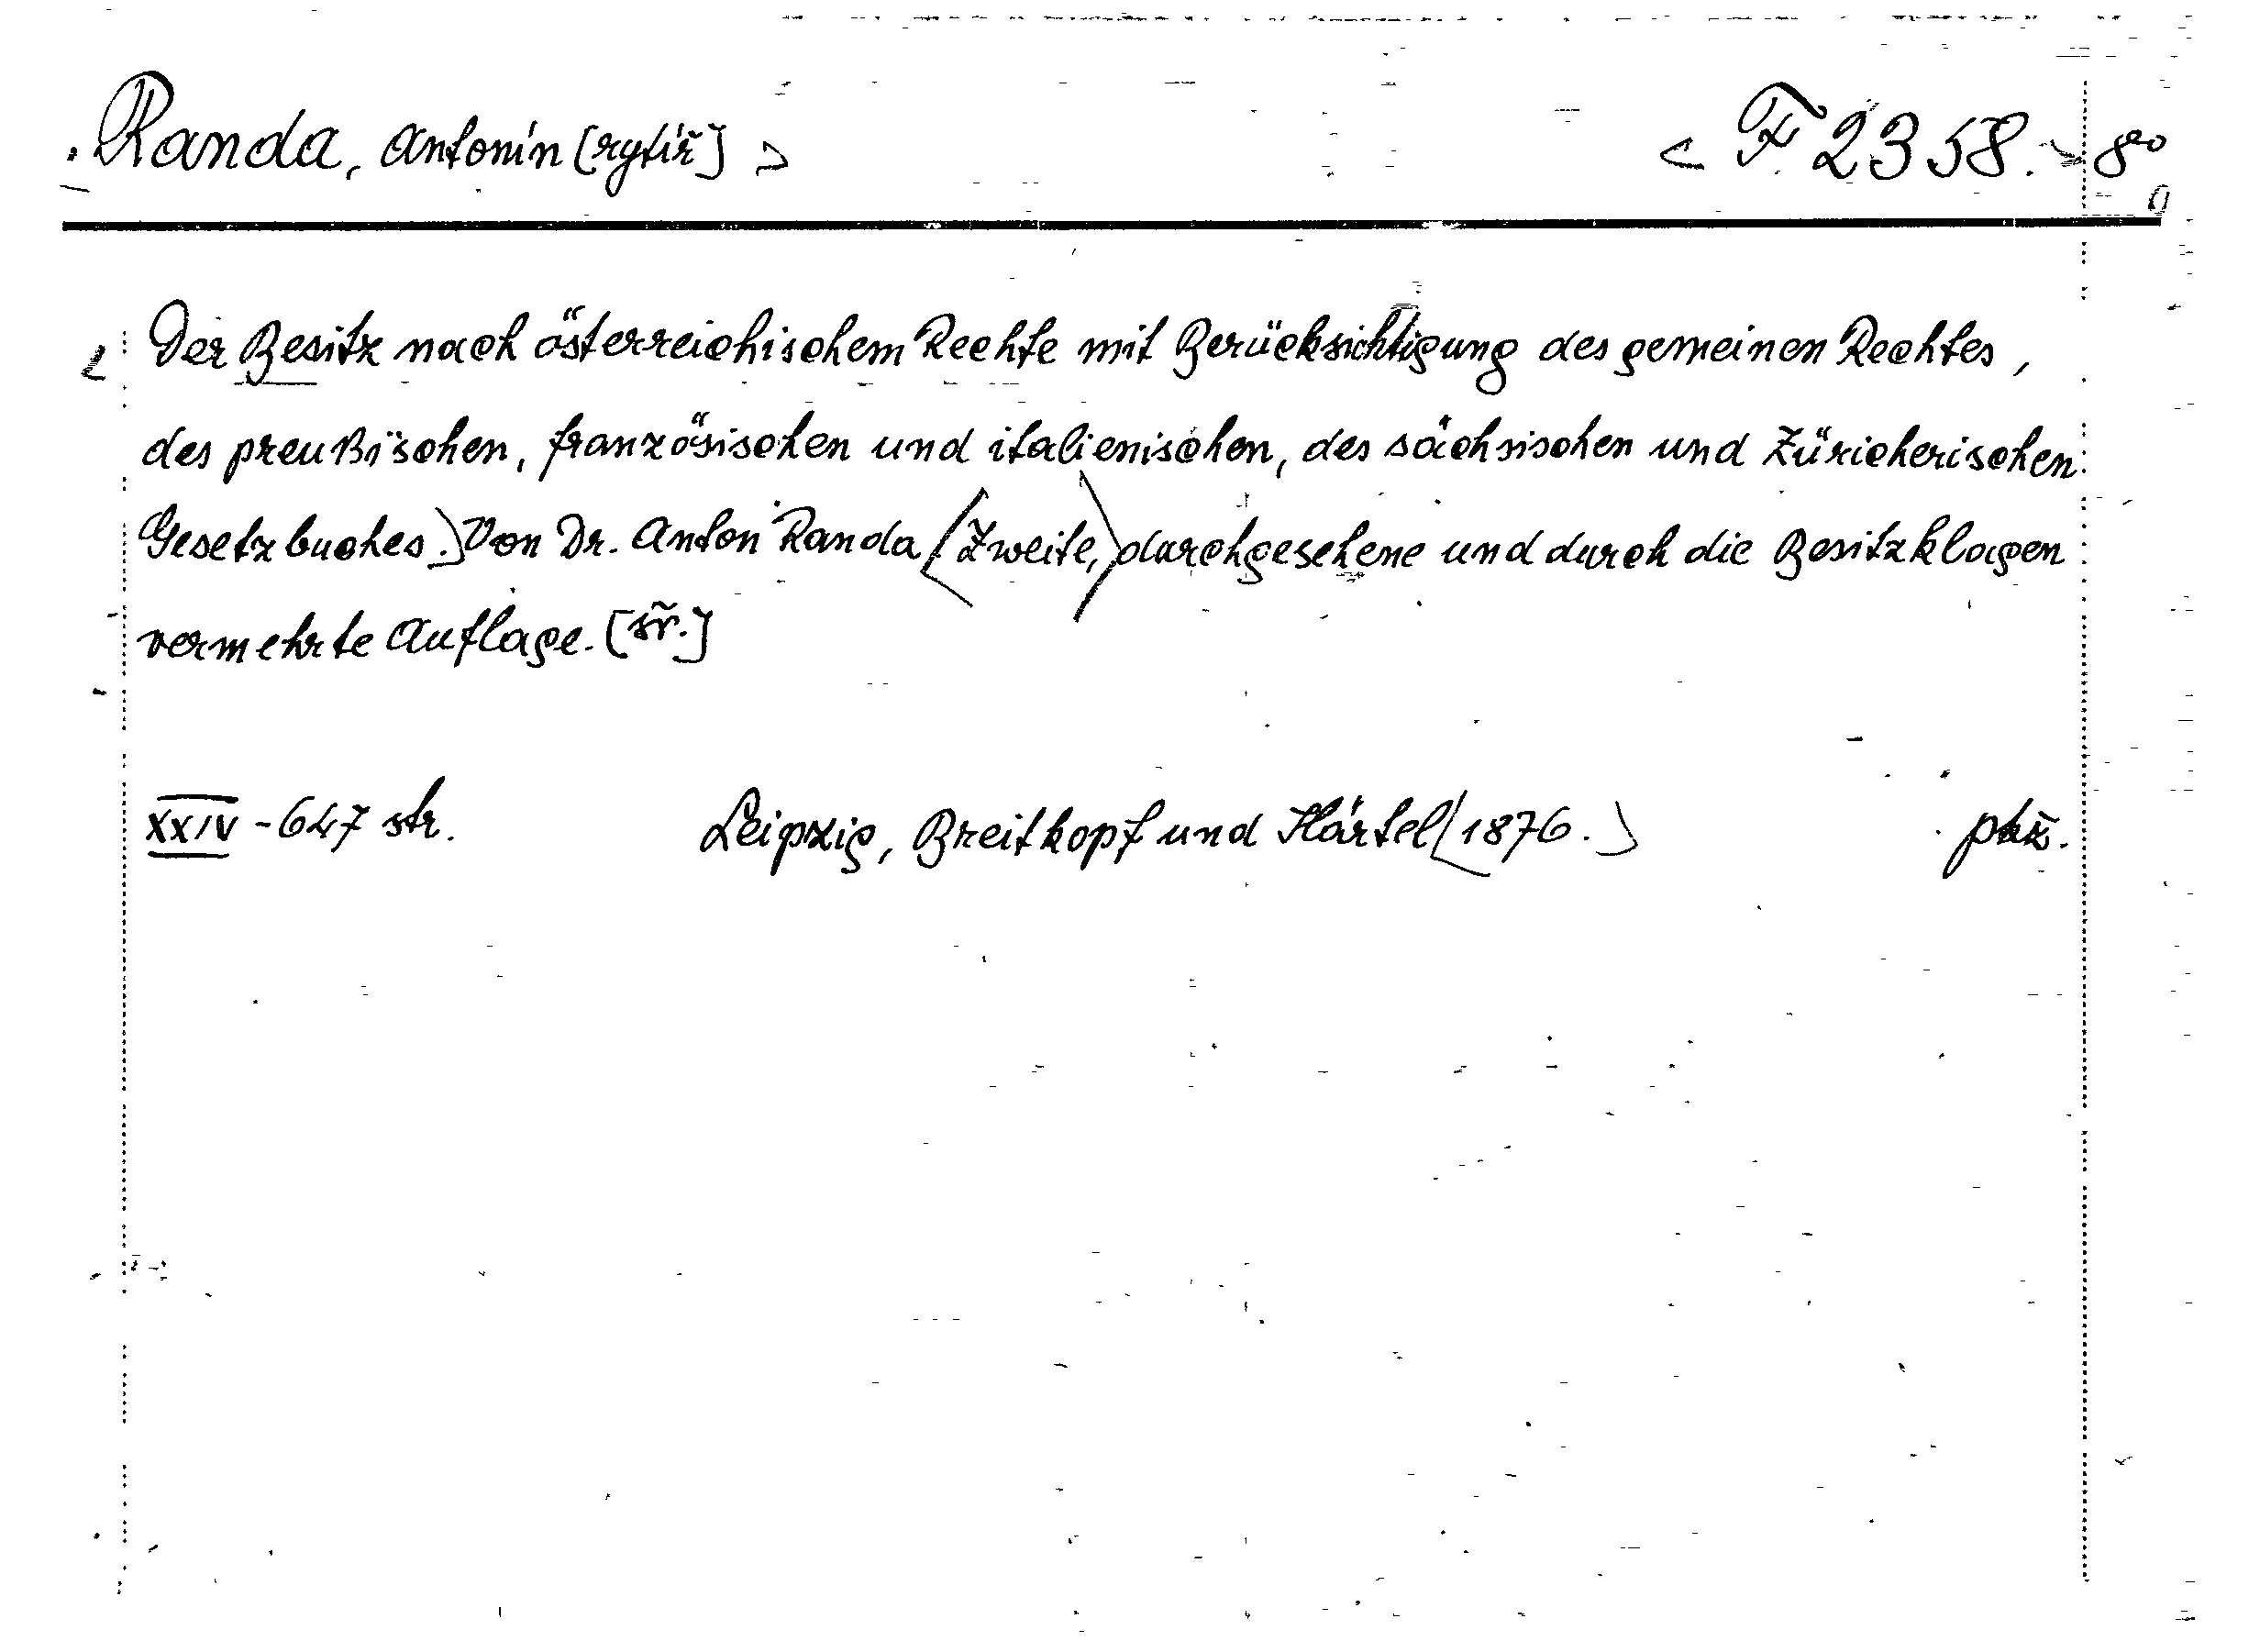 Randa, Antonín [rytíř] F 2358. 8°
Der Besitz nach österreichischem Rechte mit Berücksichtigung des gemeinen Rechtes,
des preußischen, französischen und italienischen, des sächsischen und Züricherischen
Gesetzbuches. Von Dr. Anton Randa Zweite, durchgesehene und durch die Besitzklagen
vermehrte Auflage.
XXIV - 647 str. Leipzig, Breitkopf und Härtel 1876.